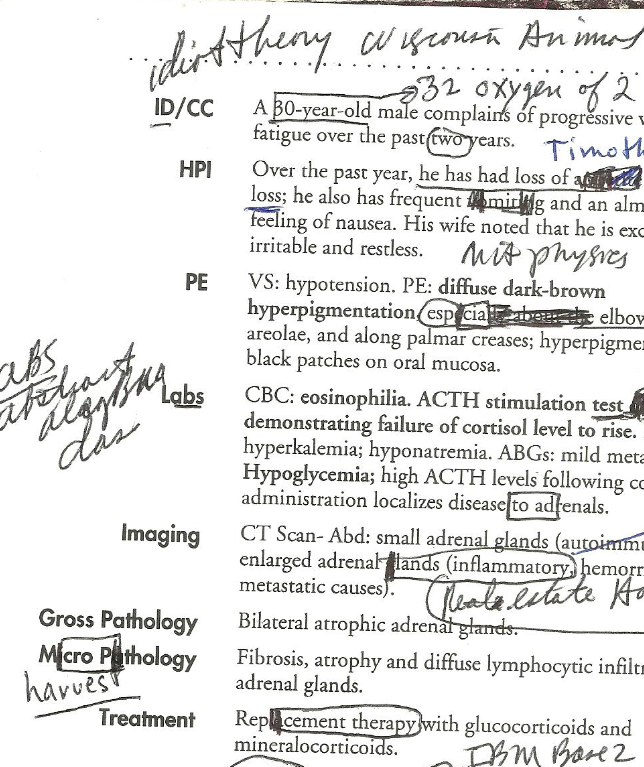 idiot theory Wisconsin Animal
32 oxygen of 2
ID/CC A 30-year-old male complains of progressive
fatigue over the past two years.
Timoth
HPI Over the past year, he has had loss of
loss; he also has frequent vomiting and an alm
feeling of nausea. His wife noted that he is exc
irritable and restless.
MIT physics
PE VS: hypotension. PE: diffuse dark-brown
hyperpigmentation, especially about the elbow
areolae, and along palmar creases; hyperpigme
black patches on oral mucosa.
abs
abstract
das
Labs CBC: eosinophilia. ACTH stimulation test
demonstrating failure of cortisol level to rise.
hyperkalemia; hyponatremia. ABGs: mild meta
Hypoglycemia; high ACTH levels following co
administration localizes disease to adrenals.
Imaging CT Scan- Abd: small adrenal glands (autoimmu
enlarged adrenal glands (inflammatory, hemorr
metastatic causes).
Real estate
Gross Pathology Bilateral atrophic adrenal glands.
Micro Pathology Fibrosis, atrophy and diffuse lymphocytic infiltr
adrenal glands.
harvest
Treatment Replacement therapy with glucocorticoids and
mineralocorticoids.
IBM Base 2